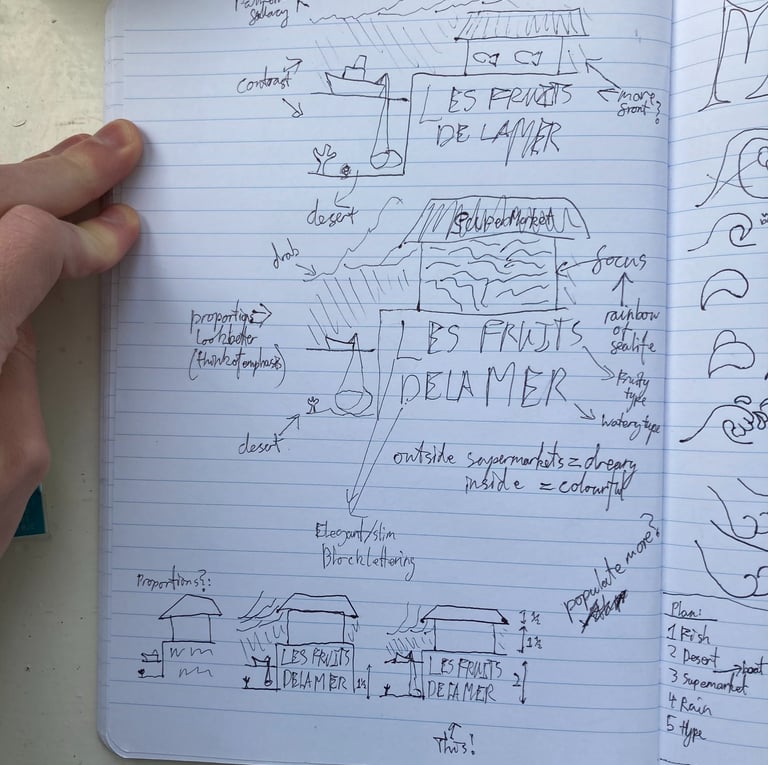 contrast
LES FRUITS
DE LA MER
more
front?
desert
SUPERMARKET
drab
focus
proportions
look better
(think of emphasis)
rainbow
of
sealife
LES FRUITS
DE LA MER
fruity
type
watery type
desert
outside supermarkets = dreary
inside = colourful
Elegant/slim
Block lettering
populate more?
Proportions?:
LES FRUITS
DE LA MER
1½
LES FRUITS
DE LA MER
1½
1½
2
This!
Plan:
1 Fish
2 Desert → boat
3 Supemarket
4 Rain
5 Type